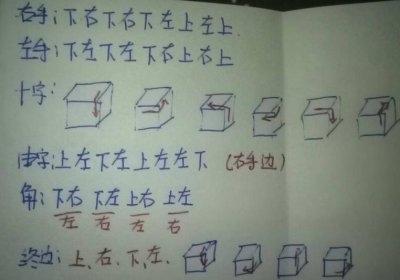 右手:下右下右下左上左上
左手:下左下左下右上右上
十字:
由字:上左下左上左左下 (右手边)
角: 下右 下左 上右 上左
左 右 左 右
终边: 上、右、下、左、